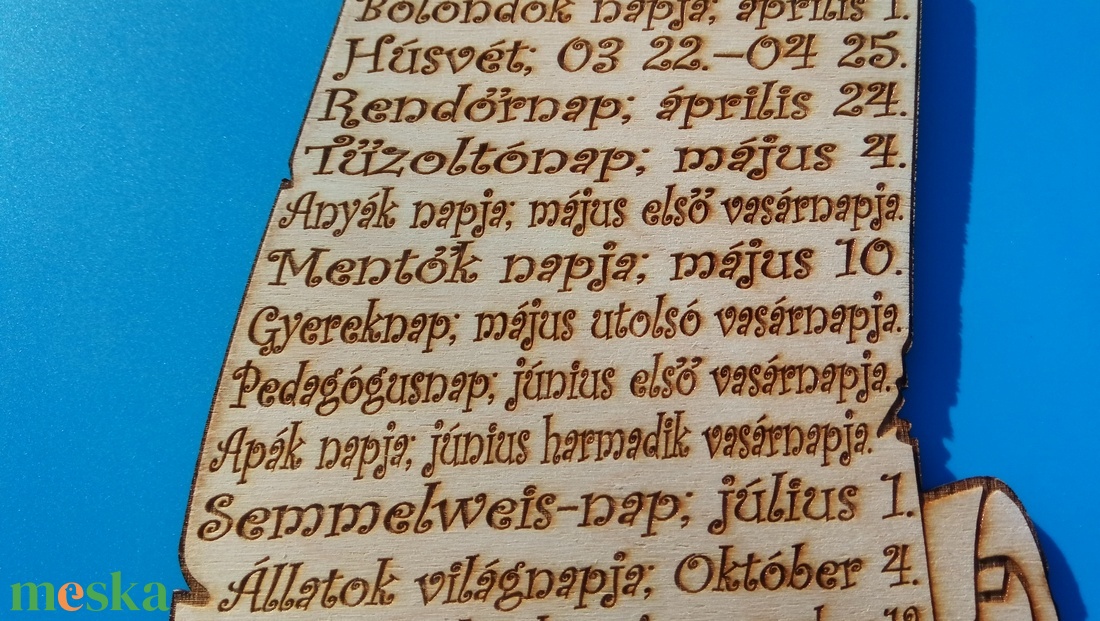 Bolondok napja; április 1.
Húsvét; 03 22.-04 25.
Rendőrnap; április 24.
Tűzoltónap; május 4.
Anyák napja; május első vasárnapja.
Mentők napja; május 10.
Gyereknap; május utolsó vasárnapja.
Pedagógusnap; június első vasárnapja.
Apák napja; június harmadik vasárnapja.
Semmelweis-nap; július 1.
Állatok világnapja; Október 4.
meska